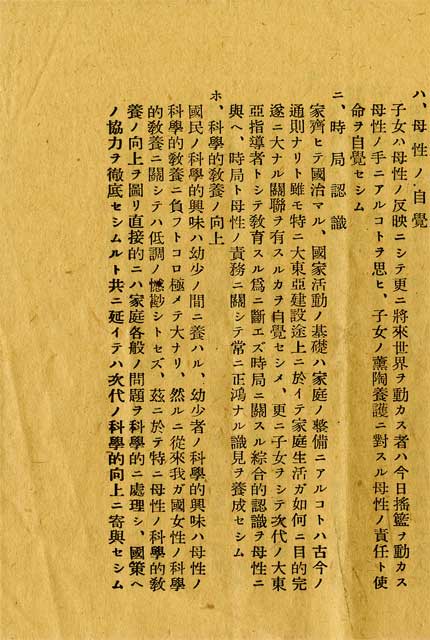 ハ、母性ノ自覺
子女ハ母性ノ反映ニシテ更ニ將來世界ヲ動カス者ハ今日搖籃ヲ動カス
母性ノ手ニアルコトヲ思ヒ、子女ノ薰陶養護ニ對スル母性ノ責任ト使
命ヲ自覺セシム
ニ、時局認識
家齊ヒテ國治マル、國家活動ノ基礎ハ家庭ノ整備ニアルコトハ古今ノ
通則ナリト雖モ特ニ大東亞建設途上ニ於イテ家庭生活ガ如何ニ目的完
遂ニ大ナル關聯ヲ有スルカヲ自覺セシメ、更ニ子女ヲシテ次代ノ大東
亞指導者トシテ敎育スル爲ニ斷エズ時局ニ關スル綜合的認識ヲ母性ニ
與ヘ、時局ト母性ノ責務ニ關シテ常ニ正鴻ナル識見ヲ養成セシム
ホ、科學的敎養ノ向上
國民ノ科學的興味ハ幼少ノ間ニ養ハル、幼少者ノ科學的興味ハ母性ノ
科學的敎養ニ負フトコロ極メテ大ナリ、然ルニ從來我ガ國女性ノ科學
的敎養ニ關シテハ低調ノ憾尠シトセズ、茲ニ於テ特ニ母性ノ科學的敎
養ノ向上ヲ圖リ直接的ニハ家庭各般ノ問題ヲ科學的ニ處理シ、國策ヘ
ノ協力ヲ徹底セシムルト共ニ延イテハ次代ノ科學的向上ニ寄與セシム